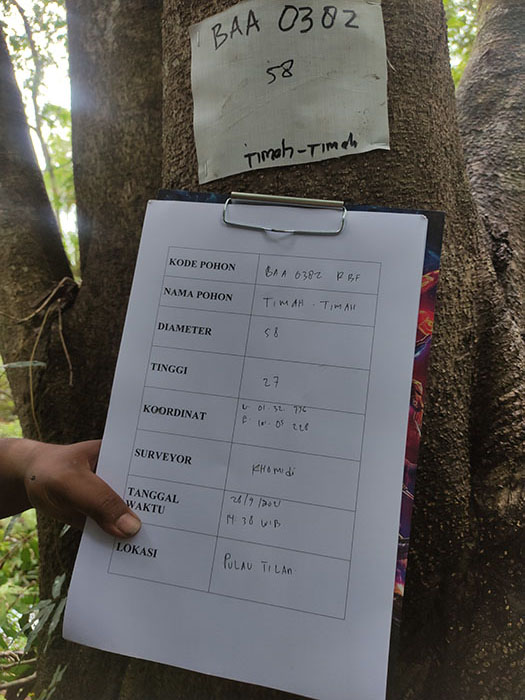 BAA 0382
58
Timah-Timah
KODE POHON BAA 0382 RBF
NAMA POHON TIMAH - TIMAH
DIAMETER 58
TINGGI 27
KOORDINAT 01. 52
E. 228
SURVEYOR KHOMIDI
TANGGAL 28/9/2021
WAKTU 14 38 WIB
LOKASI PULAU TILAN